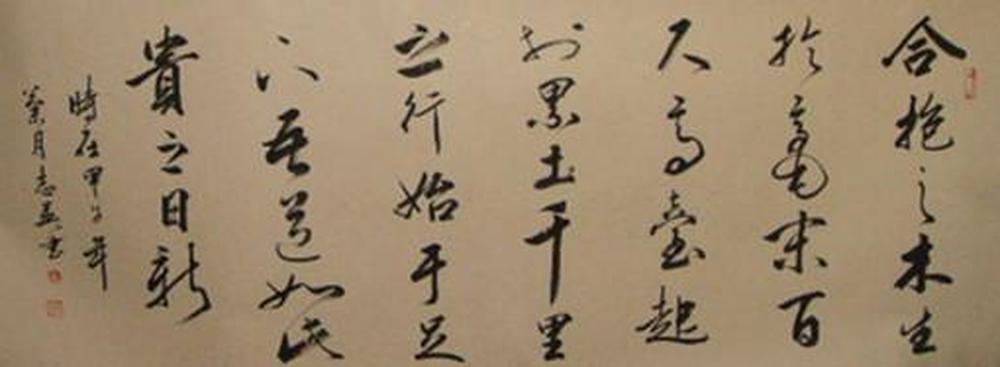 合抱之木生
於毫末百
尺高臺起
於累土千里
之行始于足
下吾道如此
貴之日新
時在甲午年
榮月志孟書